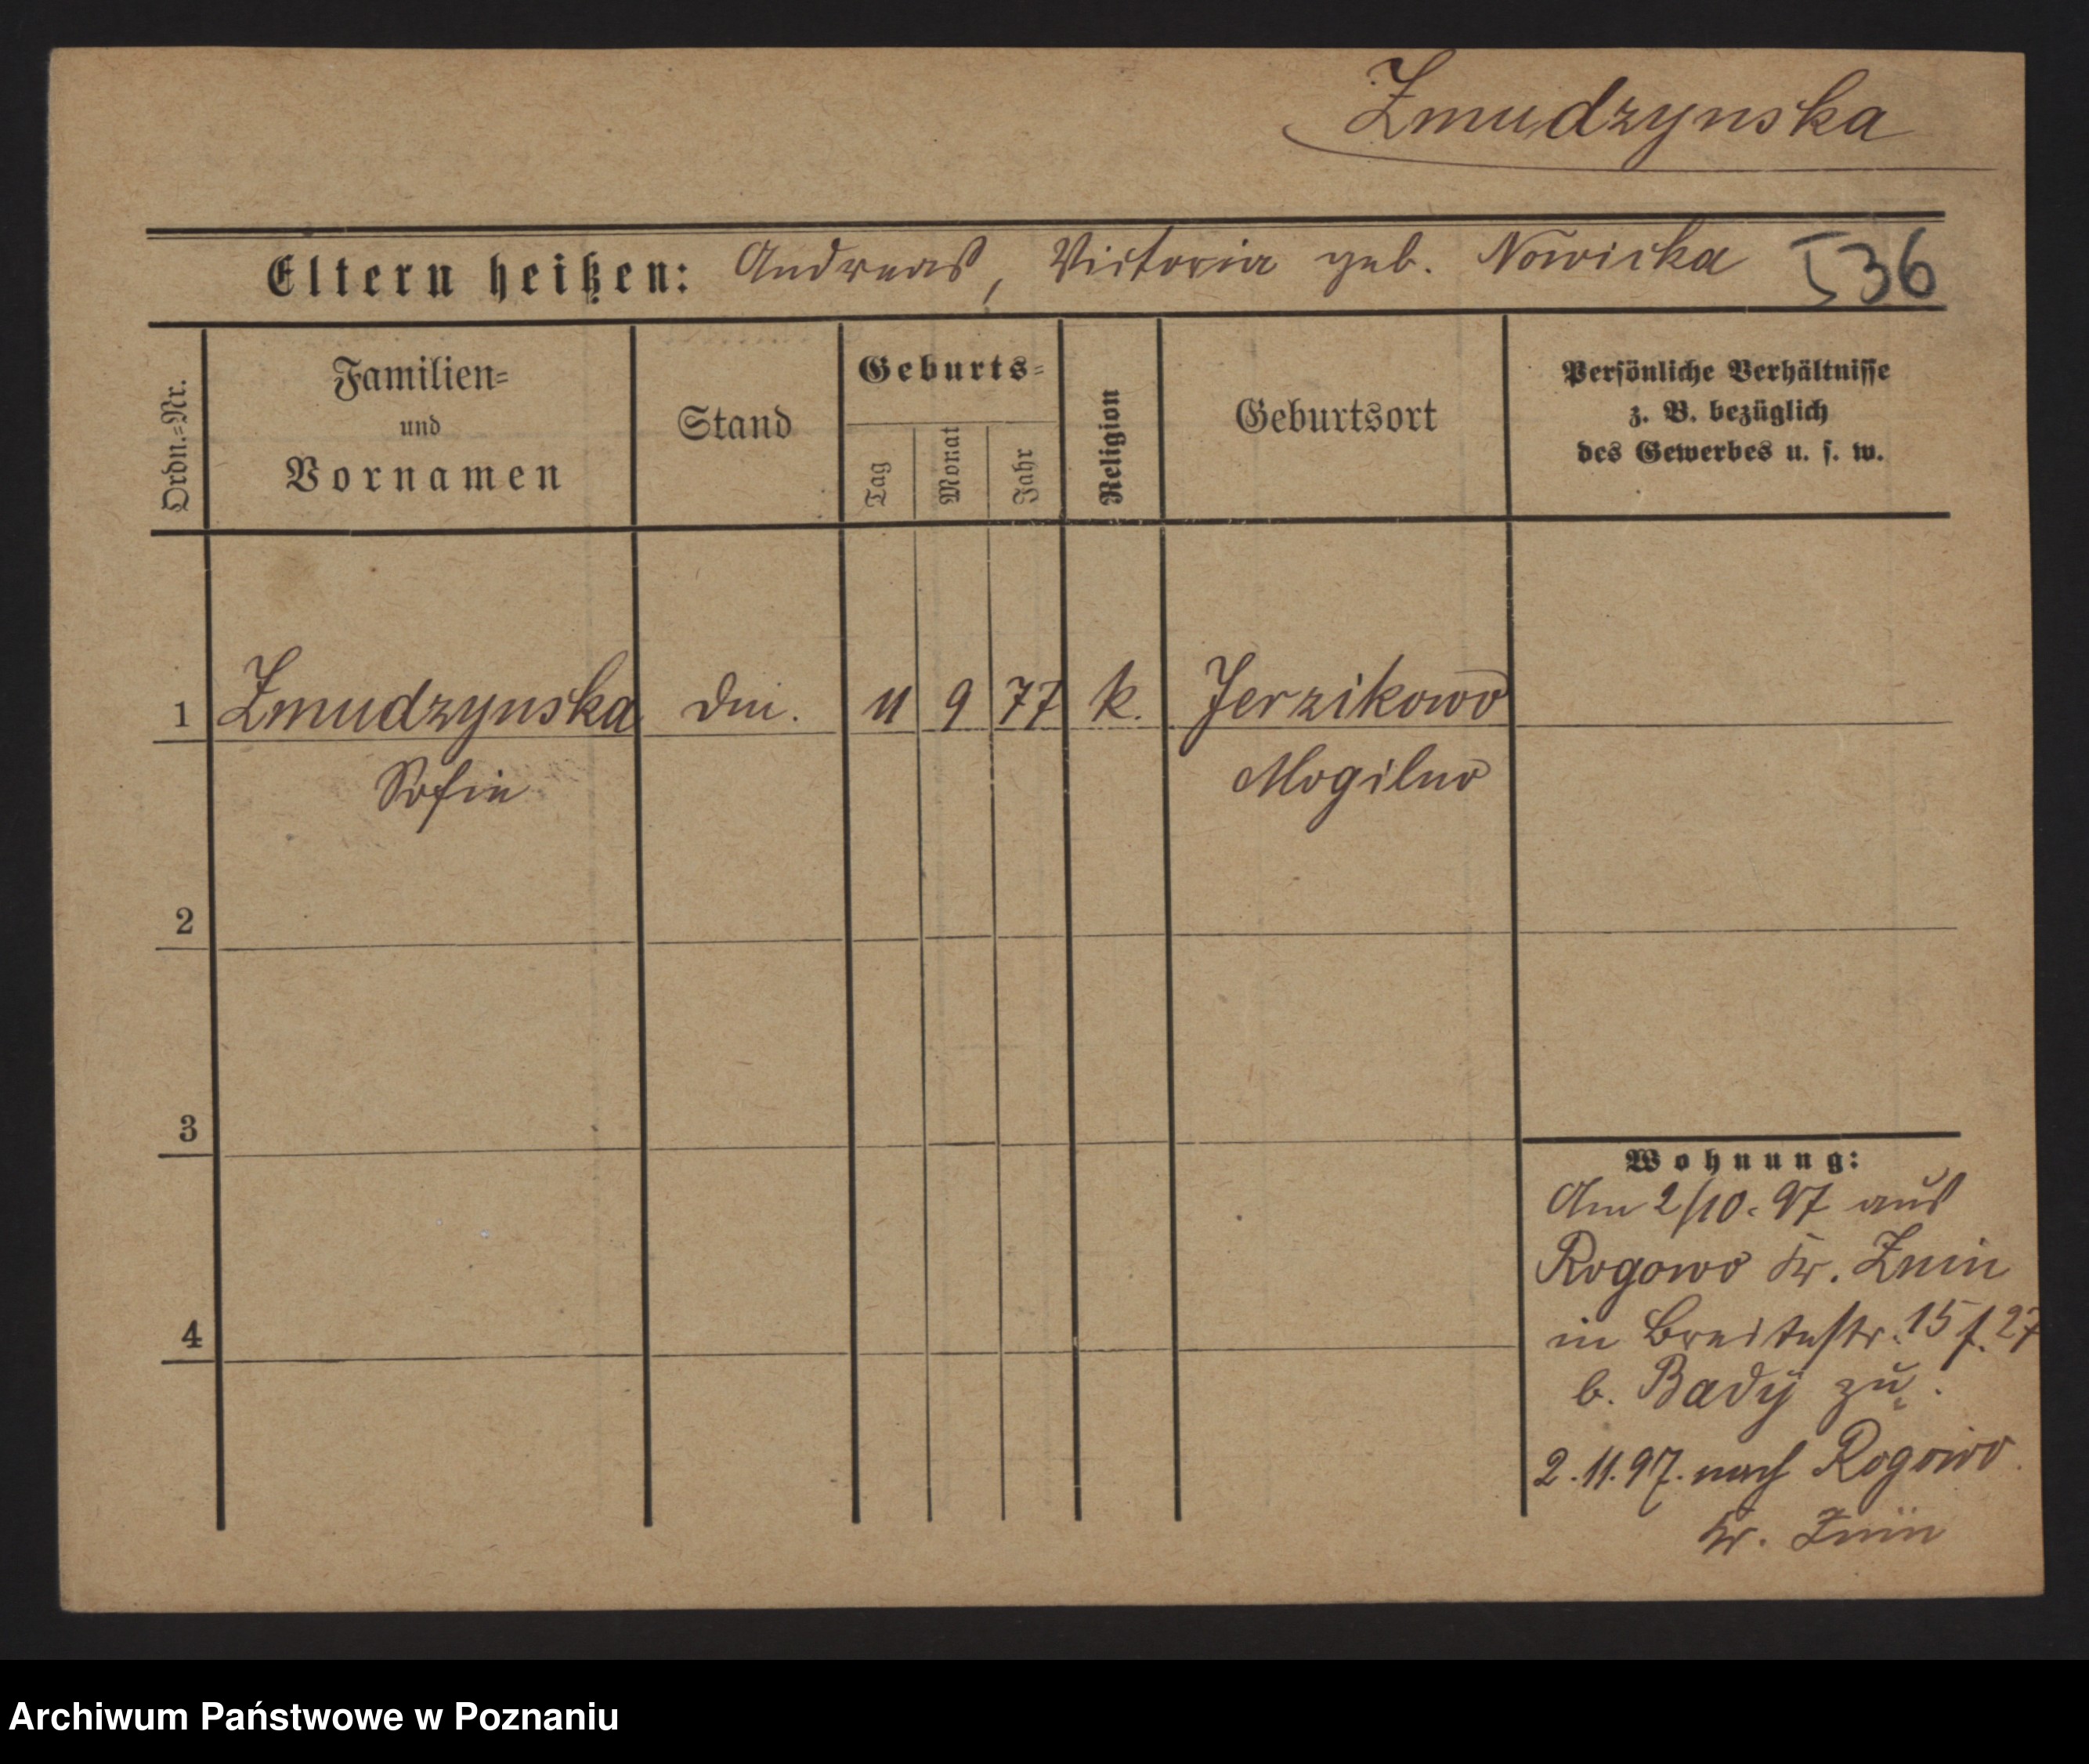 Zmudzynska
Eltern heißen: Andreas, Victoria geb. Nowicka 536
Ordn.=Nr.
Familien=
und
Vornamen
Stand
Geburts=
Tag
Monat
Jahr
Religion
Geburtsort
Persönliche Verhältnisse
z. B. bezüglich
des Gewerbes u. s. w.
1 Zmudzynska 11 9 77 k. Jerzikowo
Sofie Mogilno
2
3
4
Wohnung:
Am 2/10. 97 aus
Rogowo Kr. Znin
in Breitestr. 15 f. 27
b. Bady zu.
2.11.97. nach Rogowo
Kr. Znin
Archiwum Państwowe w Poznaniu